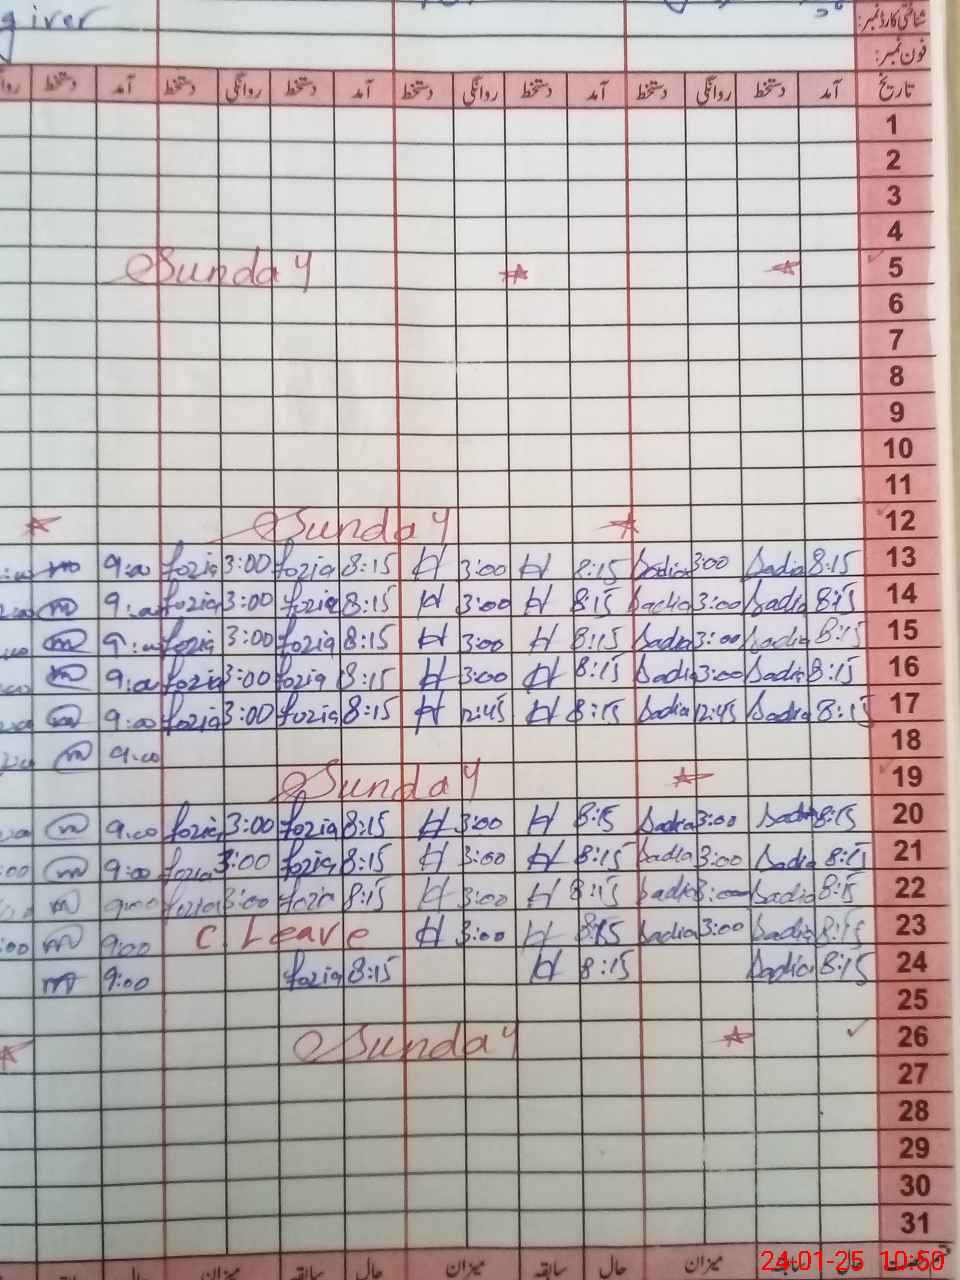 giver
شناختی کارڈ نمبر:
فون نمبر:
تاریخ آمد دستخط روانگی دستخط آمد دستخط روانگی دستخط آمد دستخط روانگی دستخط آمد دستخط
1
2
3
4
5 Sunday
6
7
8
9
10
11
12 Sunday
13 8:15 Sadia 3:00 Sadia 8:15 H 3:00 H 8:15 fozia 3:00 fozia 9:00
14 8:15 Sadia 3:00 Sadia 8:15 H 3:00 H 8:15 fozia 3:00 fozia 9:00
15 8:15 Sadia 3:00 Sadia 8:15 H 3:00 H 8:15 fozia 3:00 fozia 9:00
16 8:15 Sadia 3:00 Sadia 8:15 H 3:00 H 8:15 fozia 3:00 fozia 9:00
17 8:15 Sadia 12:45 Sadia 8:15 H 12:45 H 8:15 fozia 3:00 fozia 9:00
18 9:00
19 Sunday
20 8:15 Sadia 3:00 Sadia 8:15 H 3:00 H 8:15 fozia 3:00 fozia 9:00
21 8:15 Sadia 3:00 Sadia 8:15 H 3:00 H 8:15 fozia 3:00 fozia 9:00
22 8:15 Sadia 3:00 Sadia 8:15 H 3:00 H 8:15 fozia 3:00 fozia 9:00
23 8:15 Sadia 3:00 Sadia 8:15 H 3:00 H C Leave 9:00
24 8:15 Sadia 8:15 H 8:15 fozia 9:00
25
26 Sunday
27
28
29
30
31
حال سابقہ میزان حال سابقہ میزان حال سابقہ میزان حال
24-01-25 10:50